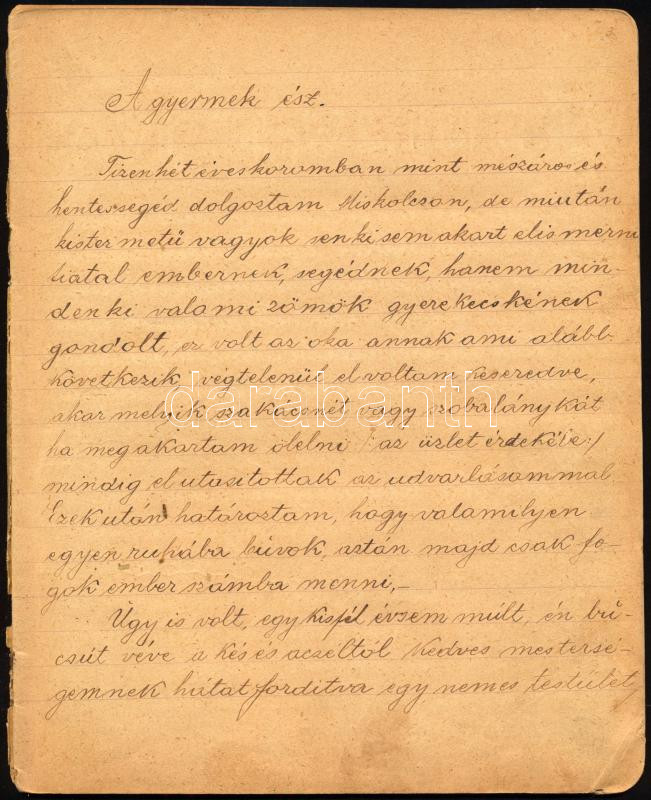 A gyermek ész.
Tizenhét éves koromban mint mészáros és
hentessegéd dolgoztam Miskolcson, de miután
kistermetű vagyok senki sem akart elismerni
fiatal embernek, segédnek, hanem min-
denki valami zömök gyerekecskének
gondolt, ez volt az oka annak ami alább
következik, végtelenül el voltam keseredve,
akarmelyik szakácsnét vagy szobalánykát
ha megakartam ölelni /:az üzlet érdekéle:/
mindig el utasitottak az udvarlásommal
Ezek után határoztam, hogy valamilyen
egyen ruhába búvok, aztán majd csak fo-
gok ember számba menni,-
Úgy is volt, egy kis fél évsem múlt, én bú-
csút véve a kés és acséltól kedves mestersé-
gemnek hátat forditva egy nemes testület
darabanth